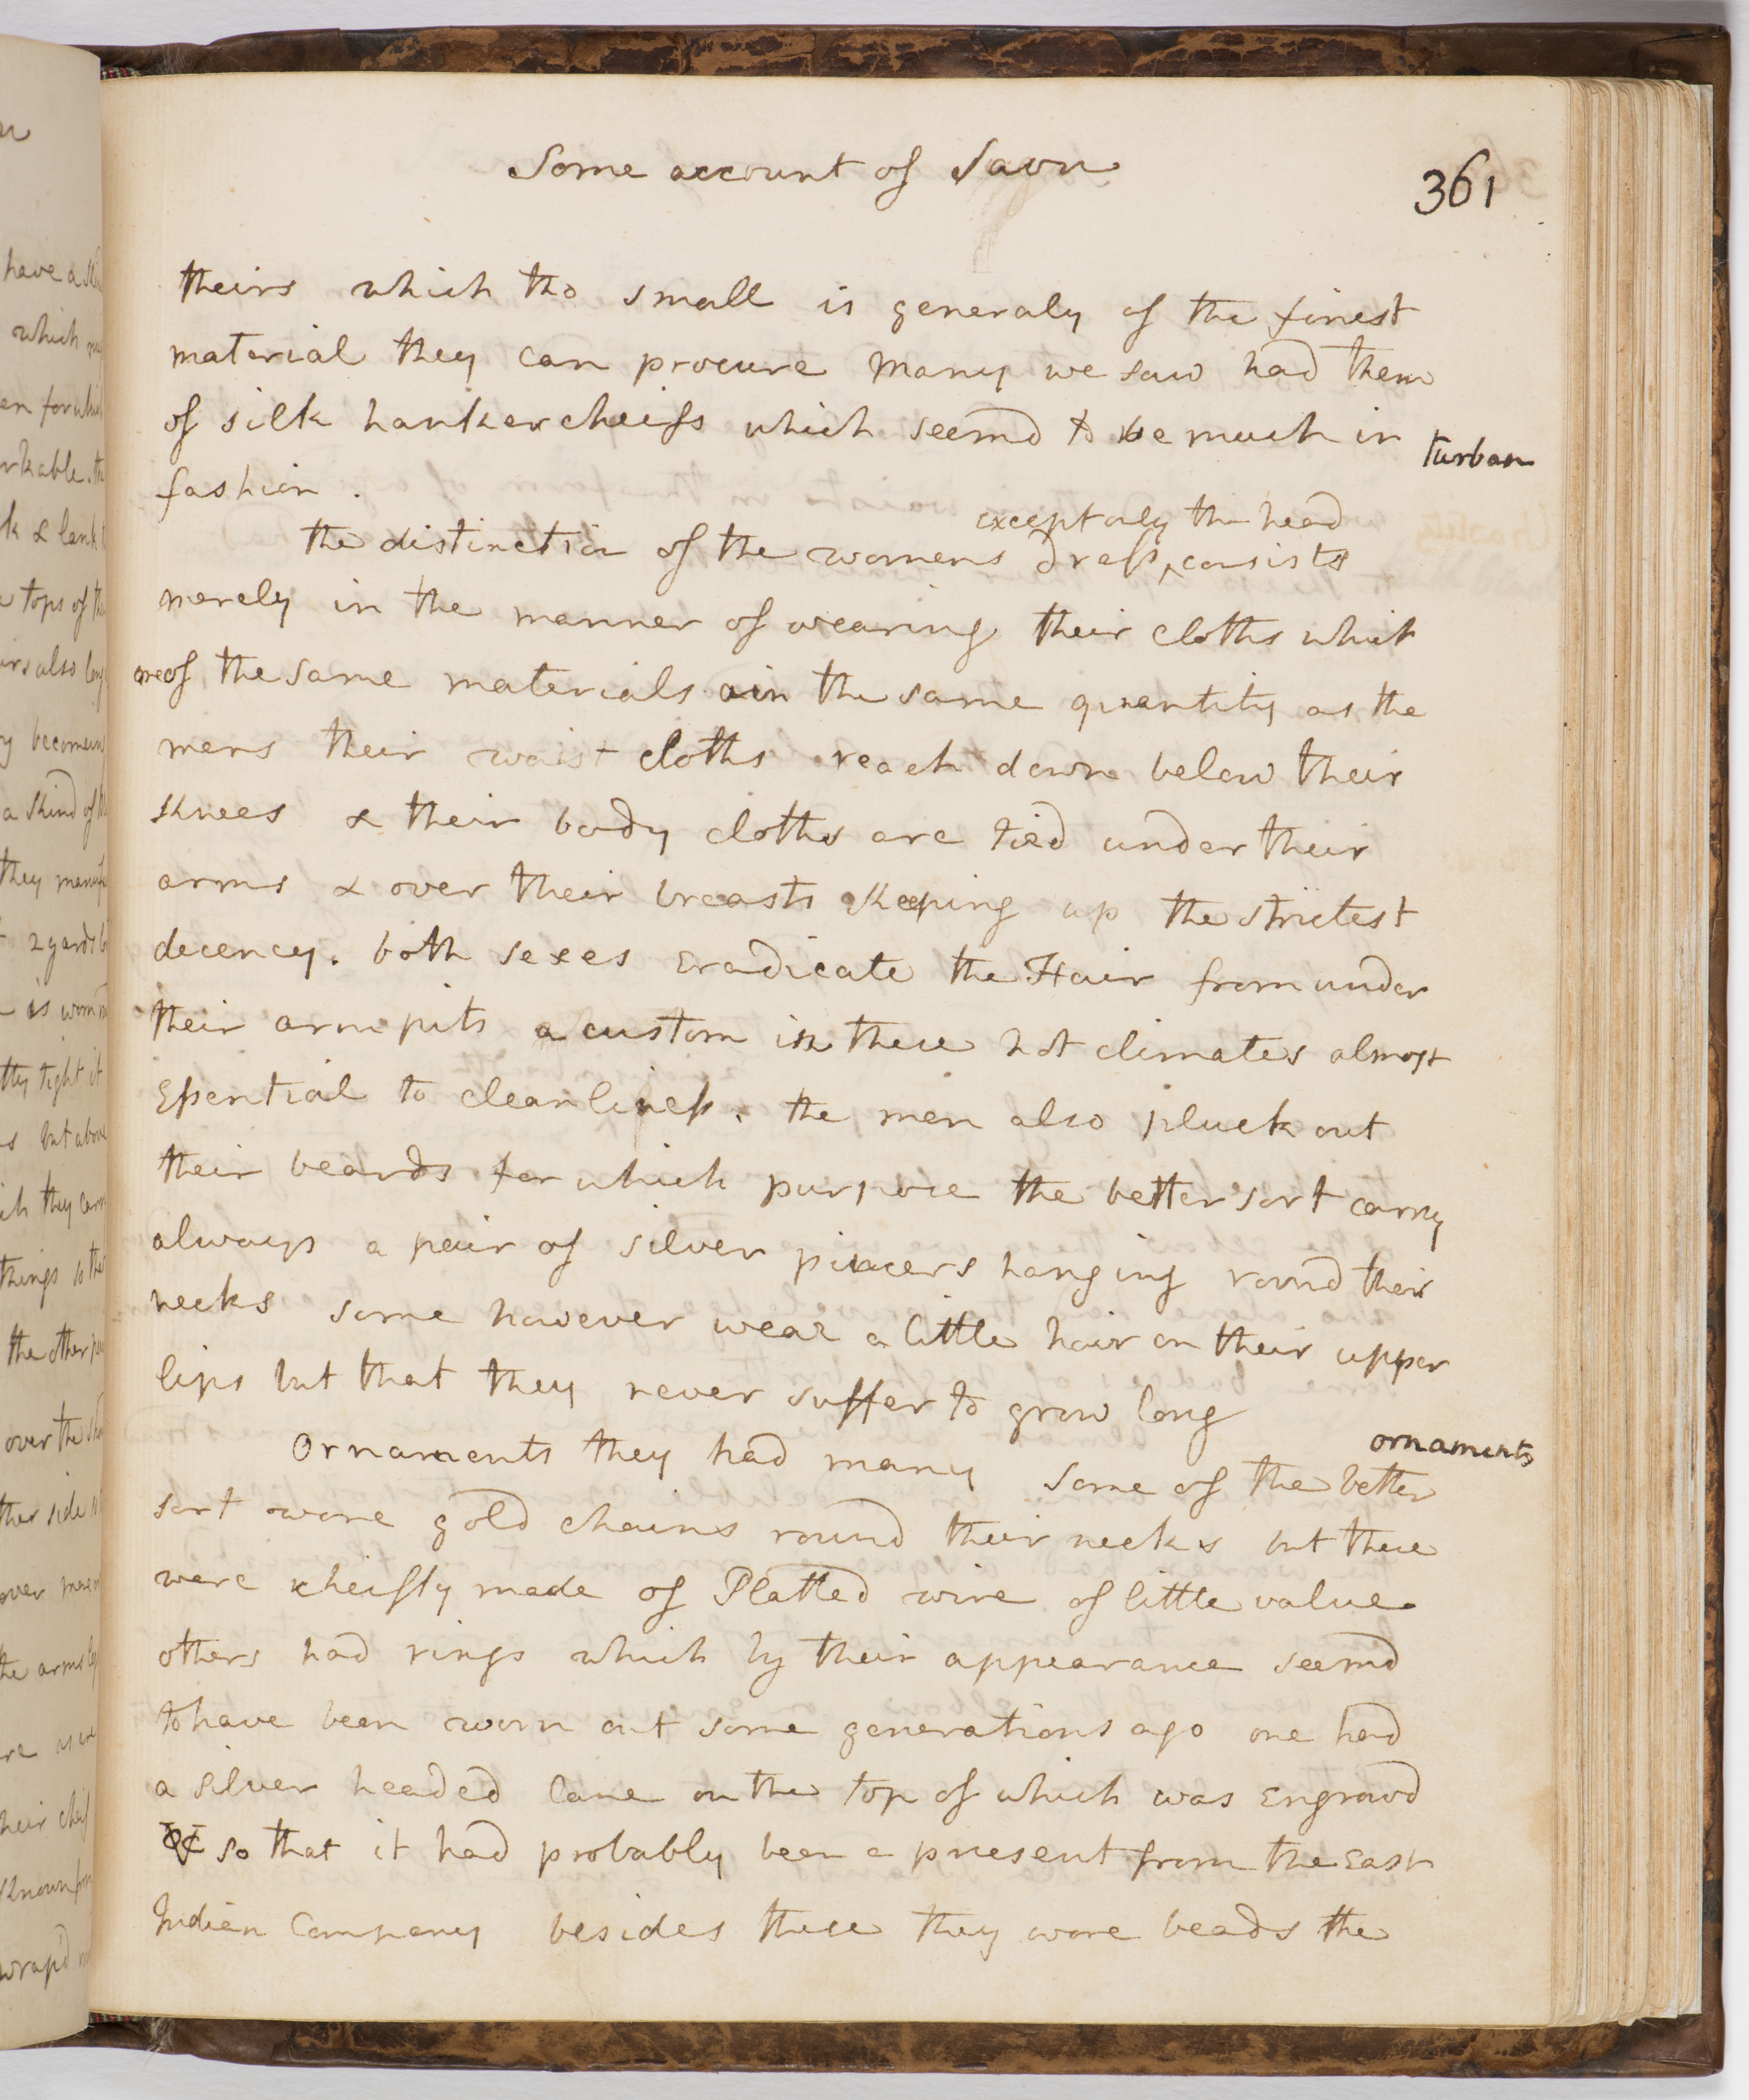 Some account of Savu
361
theirs which tho small is generaly of the finest
material they can procure many we saw had them
of silk hankercheifs which seemd to be much in
turban
fashion.
except only the head
the distinction of the womens dress, consists
merely in the manner of wearing their cloths which
are of the same materials in the same quantity as the
mens their waist cloths reach down below their
knees & their body cloths are tied under their
arms & over their breasts keeping up the strictest
decency. both sexes eradicate the Hair from under
their armpits a custom in these hot climates almost
Essential to cleanliness. the men also pluck out
their beards for which purpose the better sort carry
always a pair of silver pincers hanging round their
necks some however wear a little hair on their upper
lips but that they never suffer to grow long
ornaments
Ornaments they had many some of the better
sort wore gold chains round their necks but these
were cheifly made of Platted wire of little value
others had rings which by their appearance seemd
to have been worn out some generations ago one had
a silver headed Cane on the top of which was Engravd
so that it had probably been a present from the East
Indian Company besides these they wore beads the
have a
which
en for which
rkable. the
k & lank
tops of the
irs also long
y becoming
a kind of
they manufa
2 yards
is worn
tly tight it
s but above
ch they carry
things so the
the other
over the
ther side
over
the arms
re as
heir cheif
known from
wrapd